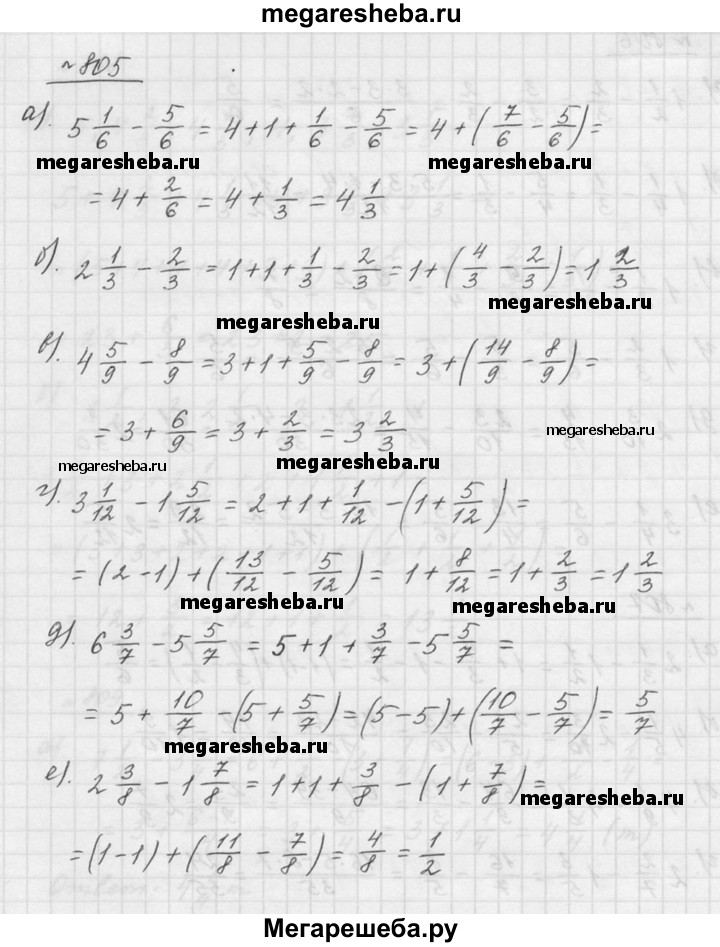 megaresheba.ru
№ 805
а). 5 1/6 - 5/6 = 4+1+ 1/6 - 5/6 = 4+(7/6 - 5/6)=
megaresheba.ru megaresheba.ru
= 4+ 2/6 = 4+ 1/3 = 4 1/3
б). 2 1/3 - 2/3 = 1+1+ 1/3 - 2/3 = 1+(4/3 - 2/3)=1 2/3
megaresheba.ru
megaresheba.ru
в). 4 5/9 - 8/9 = 3+1+ 5/9 - 8/9 = 3+(14/9 - 8/9)=
= 3+ 6/9 = 3+ 2/3 = 3 2/3
megaresheba.ru
megaresheba.ru megaresheba.ru
г). 3 1/12 - 1 5/12 = 2+1+ 1/12 -(1+ 5/12)=
= (2-1)+(13/12 - 5/12)= 1+ 8/12 = 1+ 2/3 = 1 2/3
megaresheba.ru megaresheba.ru
д). 6 3/7 - 5 5/7 = 5+1+ 3/7 - 5 5/7 =
= 5+ 10/7 -(5+ 5/7)=(5-5)+(10/7 - 5/7)= 5/7
megaresheba.ru
е). 2 3/8 - 1 7/8 = 1+1+ 3/8 -(1+ 7/8)=
megaresheba.ru
=(1-1)+(11/8 - 7/8)= 4/8 = 1/2
Мегарешеба.ру